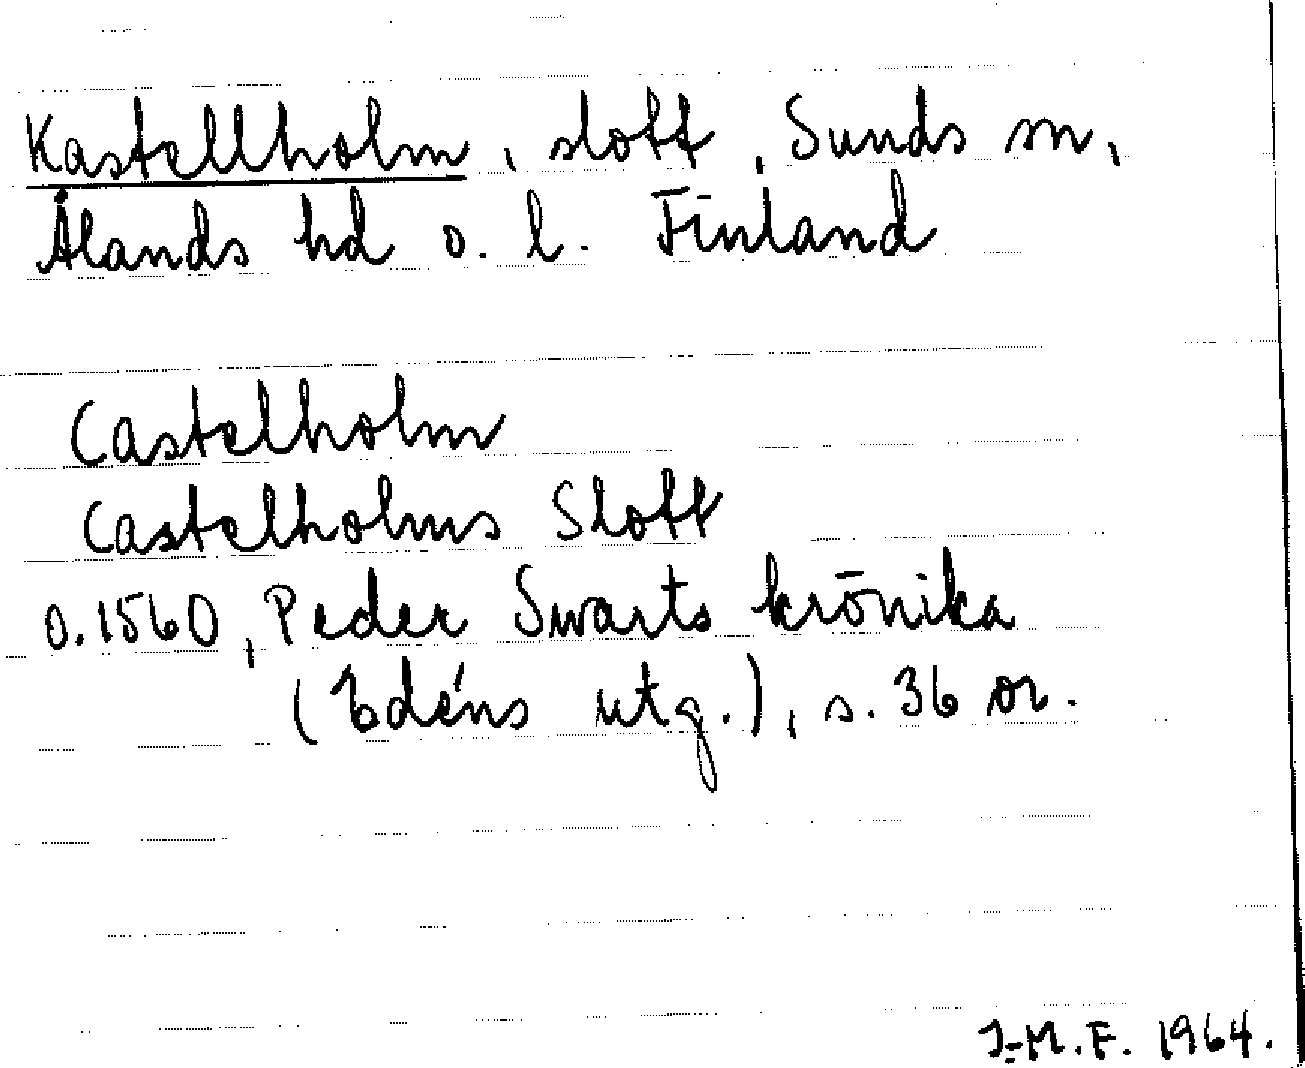 Kastellholm, slott, Sunds sn,
Ålands hd o. l. Finland
Castelholm
Castelholms Slott
o. 1560, Peder Swarts krönika
(Edéns utg.), s. 36 or.
I-M.F. 1964.